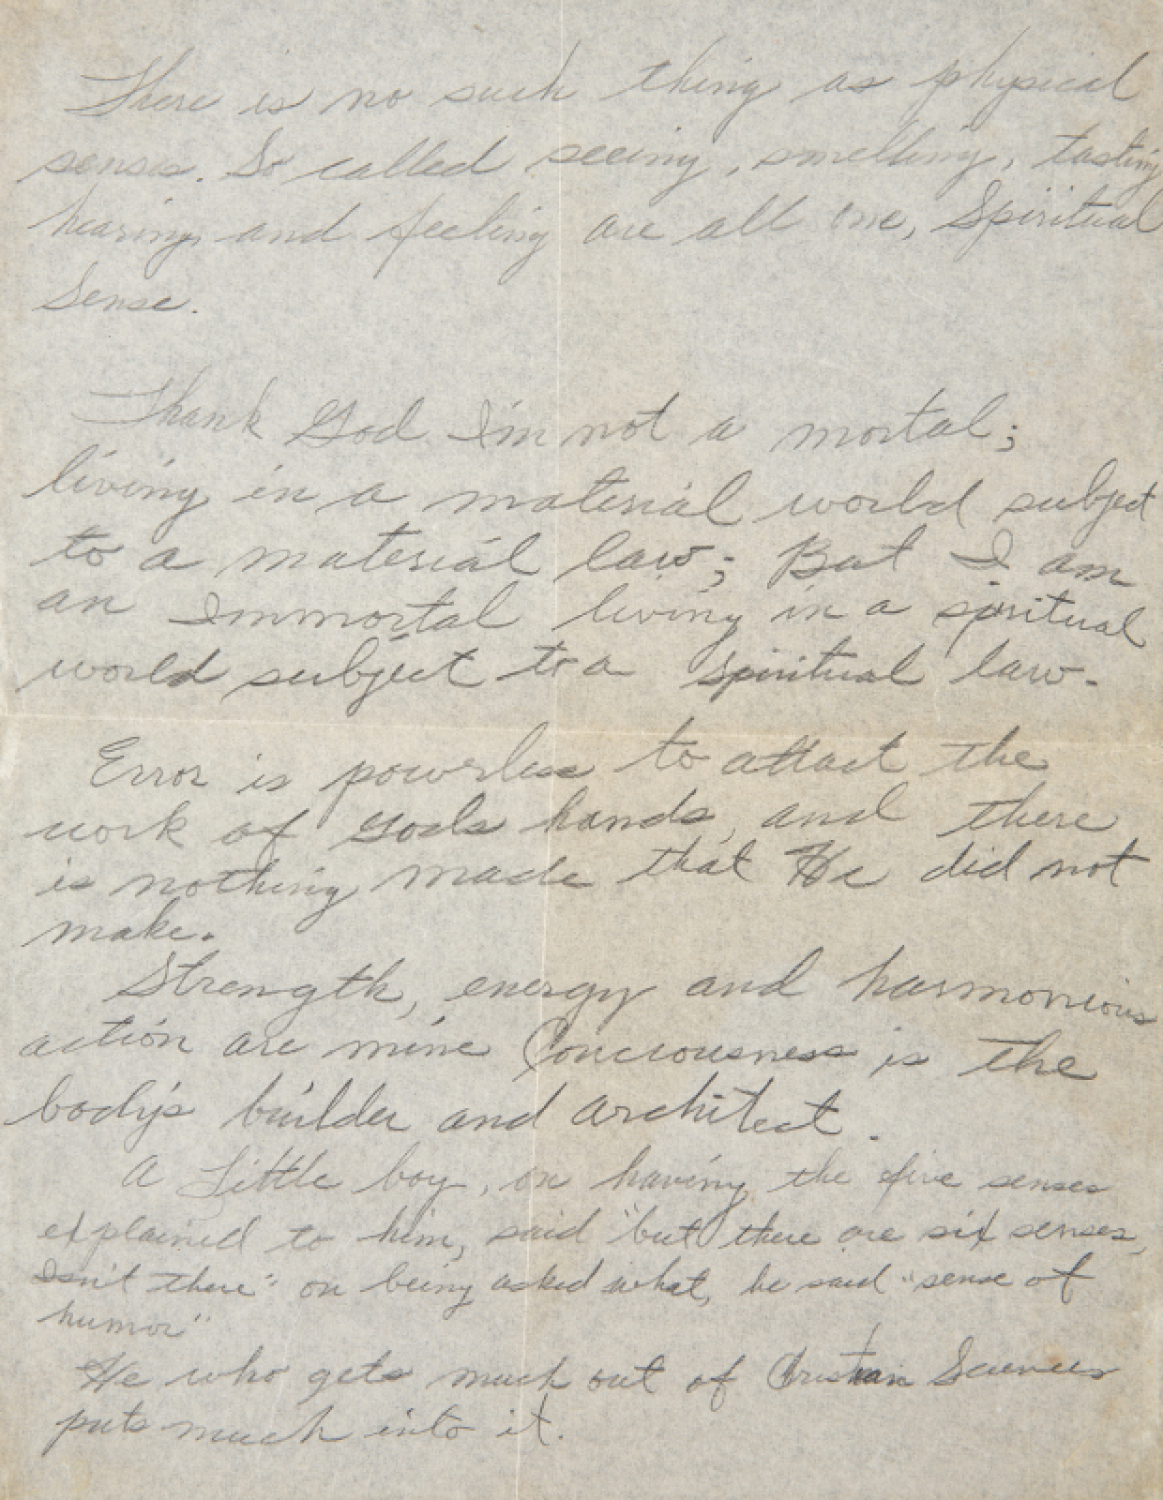 There is no such thing as physical
senses. So called seeing, smelling, tasting
hearing and feeling are all one, Spiritual
Sense.
Thank God I'm not a mortal;
living in a material world subject
to a material law; But I am
an Immortal living in a spiritual
world subject to a spiritual law.
Error is powerless to attact the
work of Gods hands, and there
is nothing made that He did not
make.
Strength, energy and harmonious
action are mine Conciousness is the
body's builder and architect.
A Little boy, on having the five senses
explained to him, said "but there are six senses,
Isn't there" on being asked what, he said "sense of
humor"
He who gets much out of Christian Sciences
puts much into it.